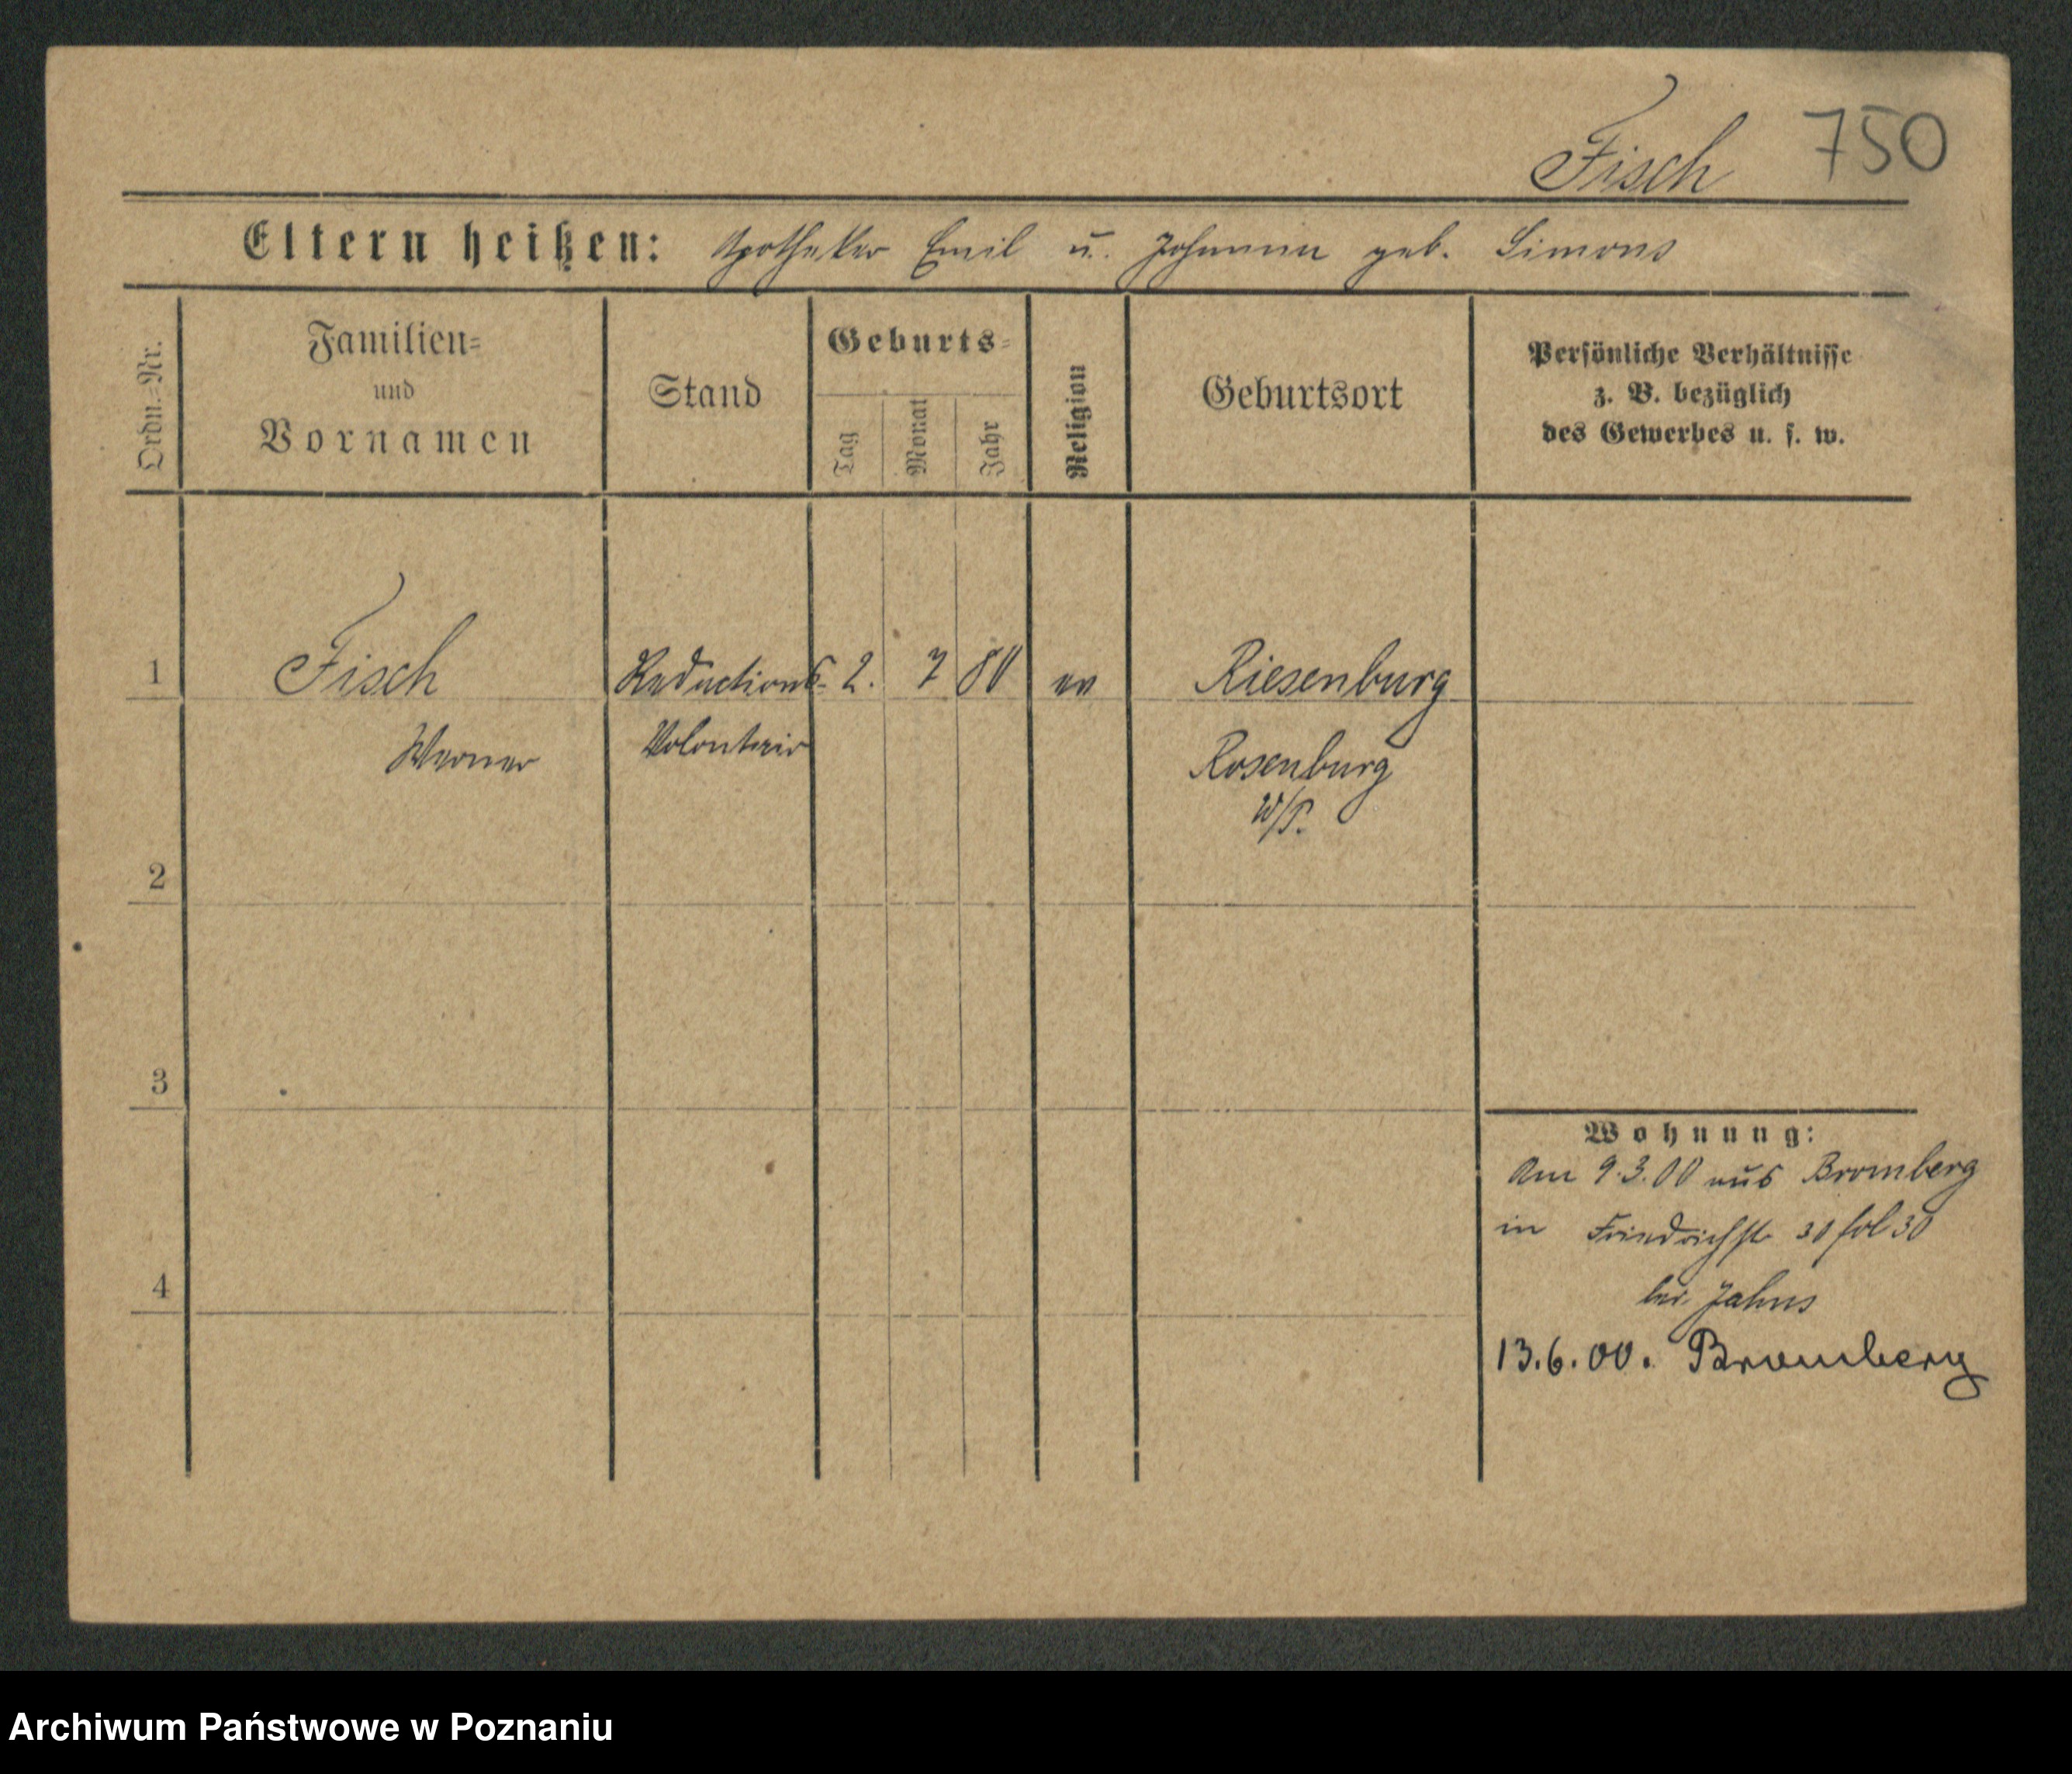 Fisch 750
Eltern heißen: Apotheker Emil u. Johanna geb. Simons
Ordn.-Nr.
Familien-
und
Vornamen
Stand
Geburts-
Tag
Monat
Jahr
Religion
Geburtsort
Persönliche Verhältnisse
z. B. bezüglich
des Gewerbes u. s. w.
1 Fisch Redactions- 2. 7 80 ev Riesenburg
Werner Volontair Rosenburg
W/P.
2
3
Wohnung:
Am 9.3.00 aus Bromberg
in Friedrichstr 30 fol 30
bei Jahns
4
13.6.00. Bromberg
Archiwum Państwowe w Poznaniu